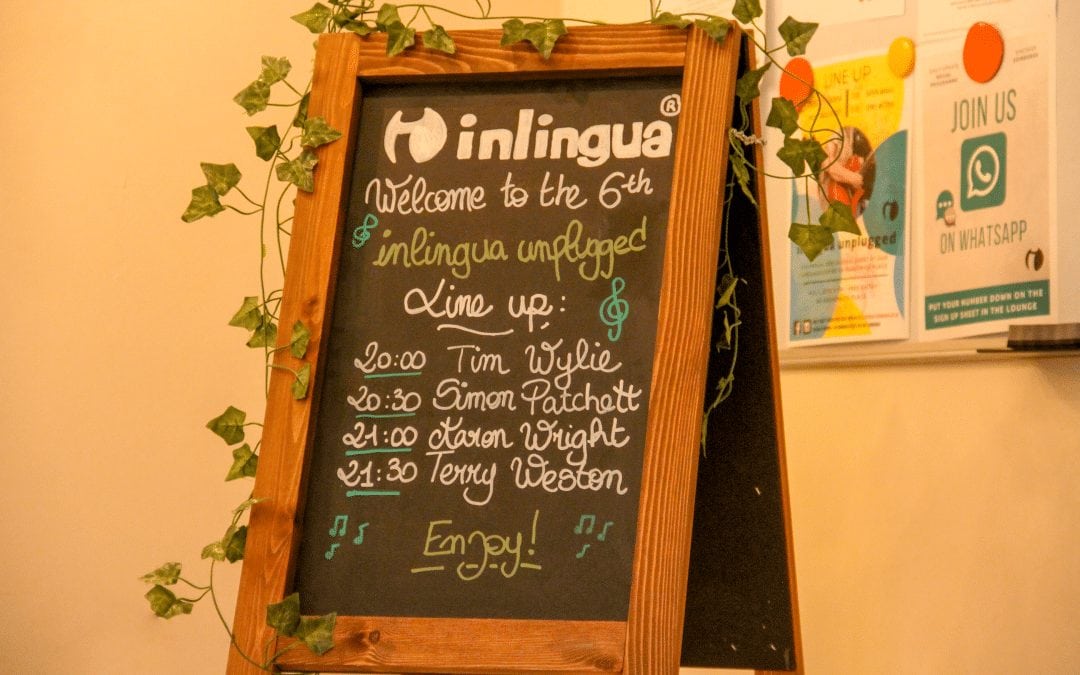 inlingua®
Welcome to the 6th
inlingua unplugged
Line up:
20:00 Tim Wylie
20:30 Simon Patchett
21:00 Aaron Wright
21:30 Terry Weston
Enjoy!
LINE-UP
unplugged
JOIN US
ON WHATSAPP
PUT YOUR NUMBER DOWN ON THE
SIGN UP SHEET IN THE LOUNGE